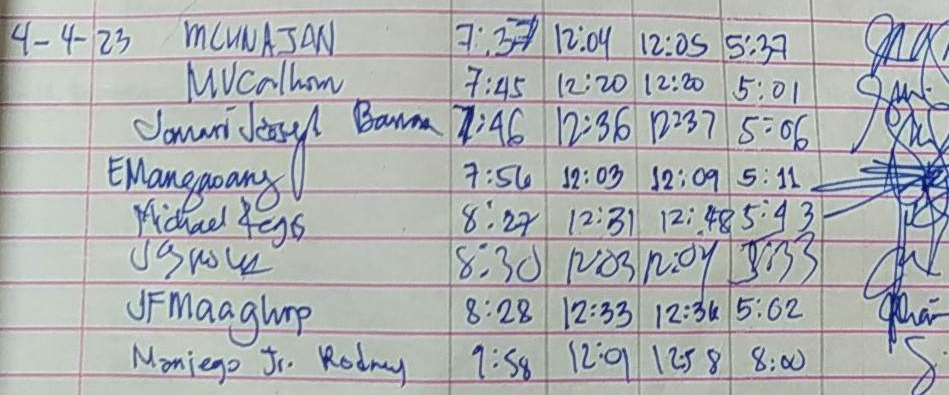 4-4-23 MCUNAJAN 7:37 12:04 12:05 5:37
MVCalhom 7:45 12:20 12:20 5:01
Jomari Joseph 7:46 12:36 12:37 5:06
EMangaoang 7:56 12:03 12:09 5:11
Michael Regs 8:27 12:31 12:48 5:43
8:30 12:03 12:04 5:33
JFMaaghop 8:28 12:33 12:34 5:02
Moniego Jr. Rodney 7:58 12:01 12:58 8:00